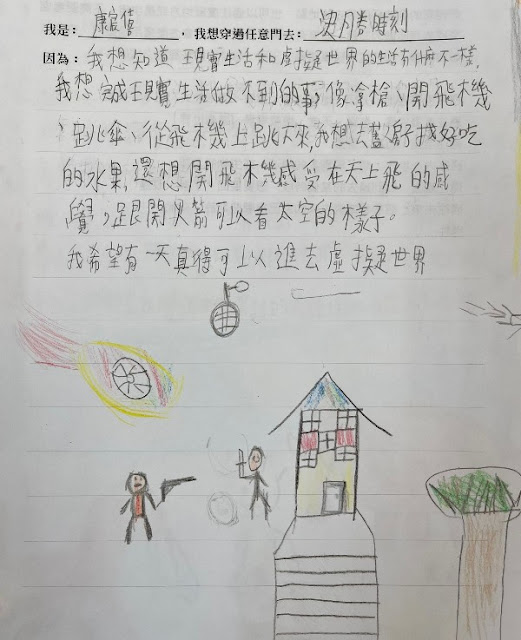 我是：康宸僖，我想穿過任意門去：決鬥時刻
因為：我想知道現實生活和虛擬世界的生活有什麼不一樣，
我想完成現實生活做不到的事，像拿槍、開飛機
、跳傘、從飛機上跳下來，我想去叢林找好吃
的水果，還想開飛機感受在天上飛的感
覺，跟開火箭可以看太空的樣子。
我希望有一天真得可以進去虛擬世界